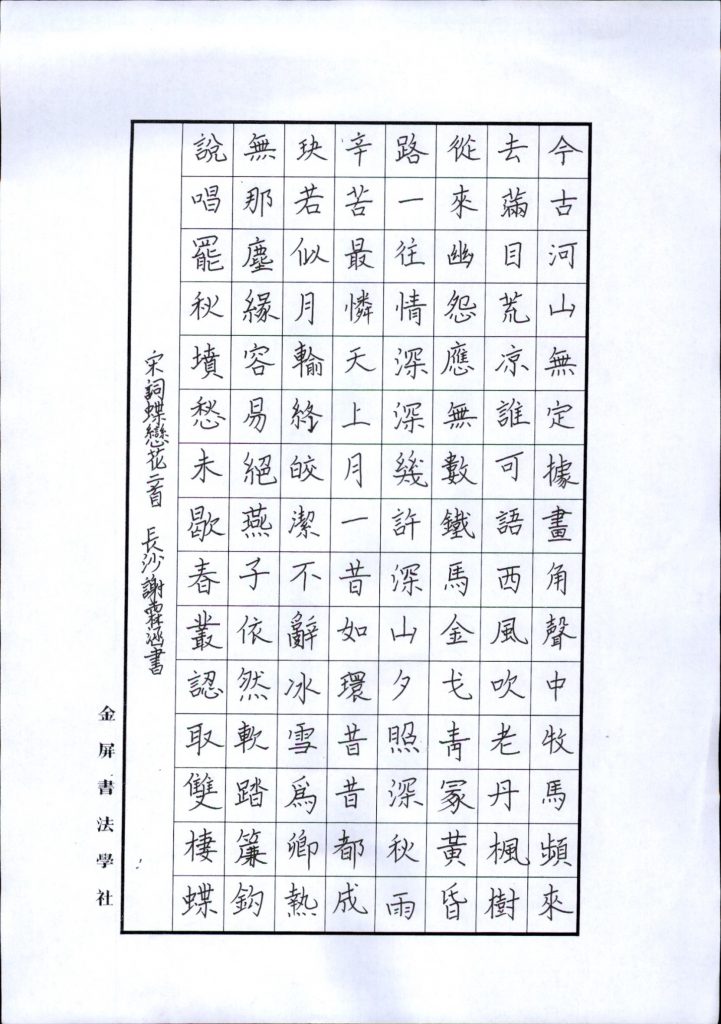 今古河山無定據畫角聲中牧馬頻來
去滿目荒凉誰可語西風吹老丹楓樹
從來幽怨應無數鐵馬金戈青冢黃昏
路一往情深深幾許深山夕照深秋雨
辛苦最憐天上月一昔如環昔昔都成
玦若似月輪終皎潔不辭冰雪爲卿熱
無那塵緣容易絕燕子依然軟踏簾鈎
說唱罷秋墳愁未歇春叢認取雙棲蝶
宋詞蝶戀花二首 長沙謝霖書
金屏書法學社